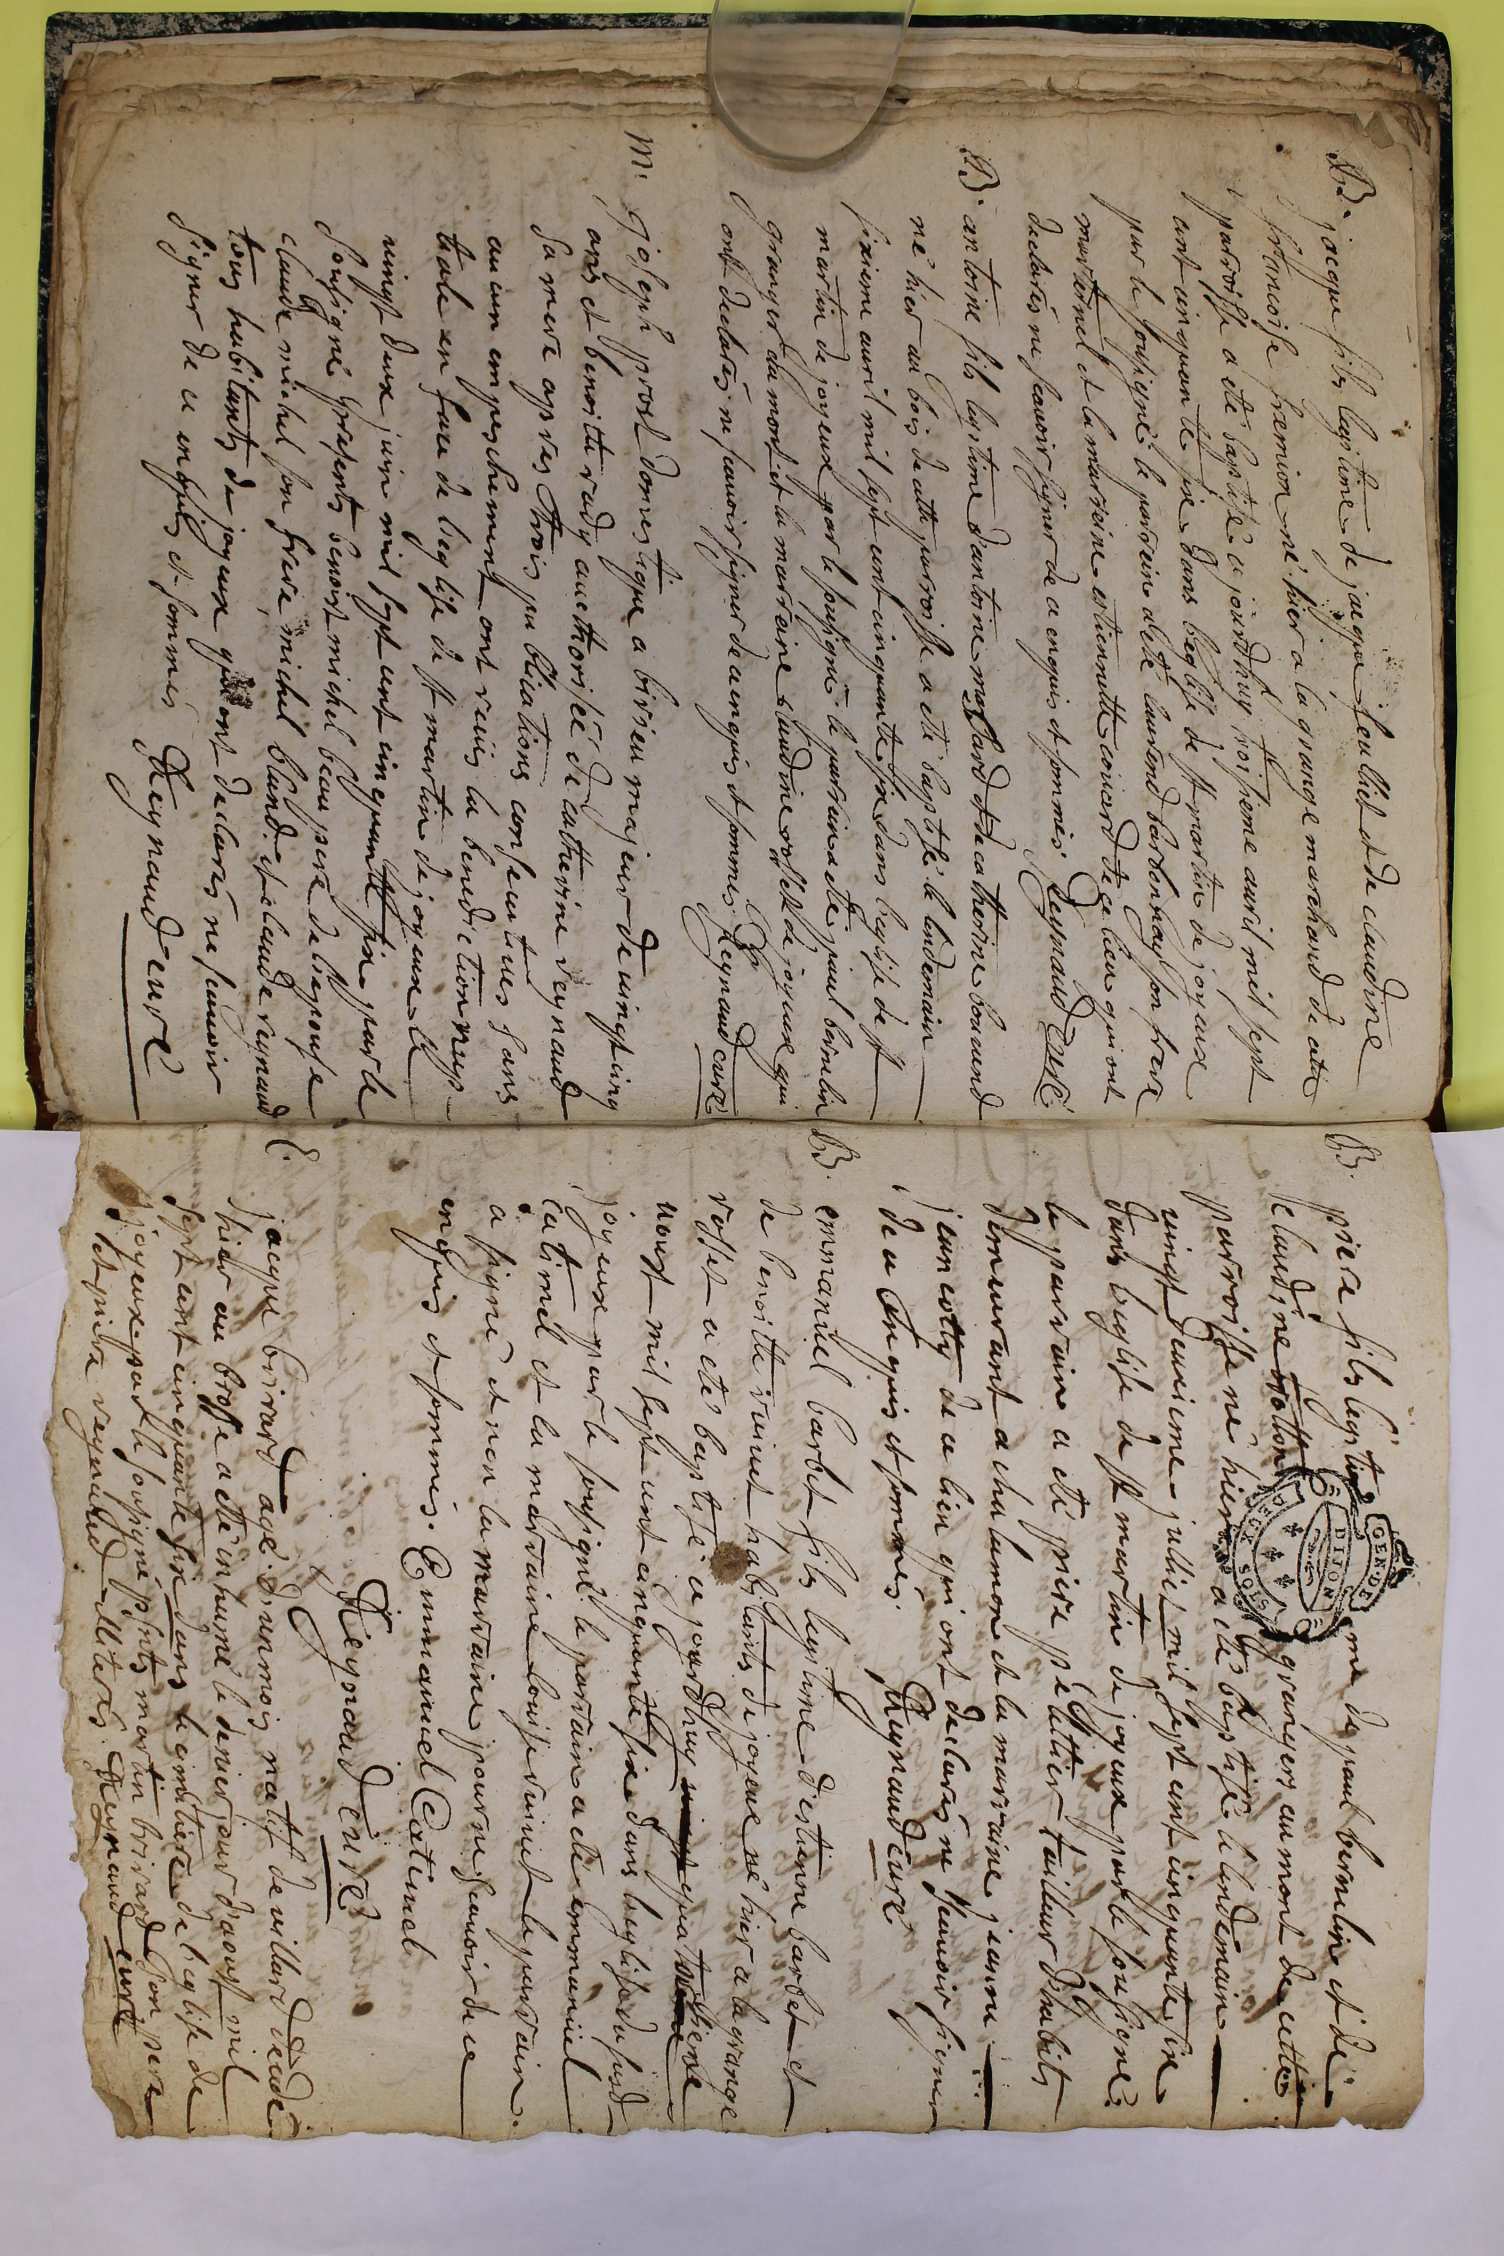 B. jacque fils legitime de jacque feulliet et de claudine
françoise fremion né hier a la grange marchand de cette
parroisse a eté baptisé ce jourdhuy troisieme auril mil sept
cent cinquante six dans leglise de st martin de joyeux
par le soussigné le parrein a eté laurend barbonnay son frere
maternel et la marreine estiennette couicard de ce lieu qui ont
declarés ne scauoir signer de ce enquis et sommés. Reynaud curé.
B. antoine fils legitime d'antoine massard et de catherine bouuend
né hier au bois de cette parroisse a eté baptisé le lendemain
sixieme auril mil sept cent cinquante six dans leglise de st
martin de joyeux par le soussigné le parrein a eté paul bernelin
granger du mont et la marreine claudine rosset de joyeux qui
ont declarés ne scauoir signer de ce enquis et sommés. Reynaud curé
M. joseph prost domestique a birieu majeur de uingt cinq
ans et benoite rudy aucthorisée de catherine reynaud
sa mere apres trois publications consecutiues sans
aucun empeschement ont reçus la benediction nup-
tiale en face de leglise de st martin de joyeux le
uingt deux juin mil sept cent cinquante six par le
soussigné presents benoist michel beau pere de lepouse
claude michel son frere, michel bland et claude reynaud
tous habitants de joyeux qui ont declarés ne scauoir
signer de ce enquis et sommés Reynaud curé
GEN DE
DIJON
DEUX SOLS
B. piere fils legitime de paul bernelin et de
claudine mollon grangers au mont de cette
parroisse né hier a eté baptisé le lendemain
uingt deuxieme juillet mil sept cent cinquante six
dans leglise de st martin de joyeux par le soussigné.
le parrain a eté piere peluttier tailleur dhabits
demeurant a chalamon et la marraine jeanne
jeancolly de ce lieu qui ont declarés ne scauoir signer
de ce enquis et sommés. Reynaud curé
B. emmanuel barbet fils legitime destienne barbet et
de benoitte ruinet habitants de joyeux né hier a la grange
rosset a eté baptisé ce jourdhuy
aoust mil sept cent cinquante six dans leglise dudit
joyeux par le soussigné le parrain a eté emmanuel
catimel et la marraine louise ruinet le parrain
a signé et non la marraine pour ne scauoir de ce
enquis et sommés. Emmanuel Catimel
Reynaud curé
E. jacque brirard agé dun mois natif de uillard decedé
hier au brosse a eté inhumé le dernier jour d'aoust mil
sept cent cinquante six dans le cimetiere de leglise de
joyeux par le soussigné pnts martin brirard son pere
et piere reynaud illiterés. Reynaud curé